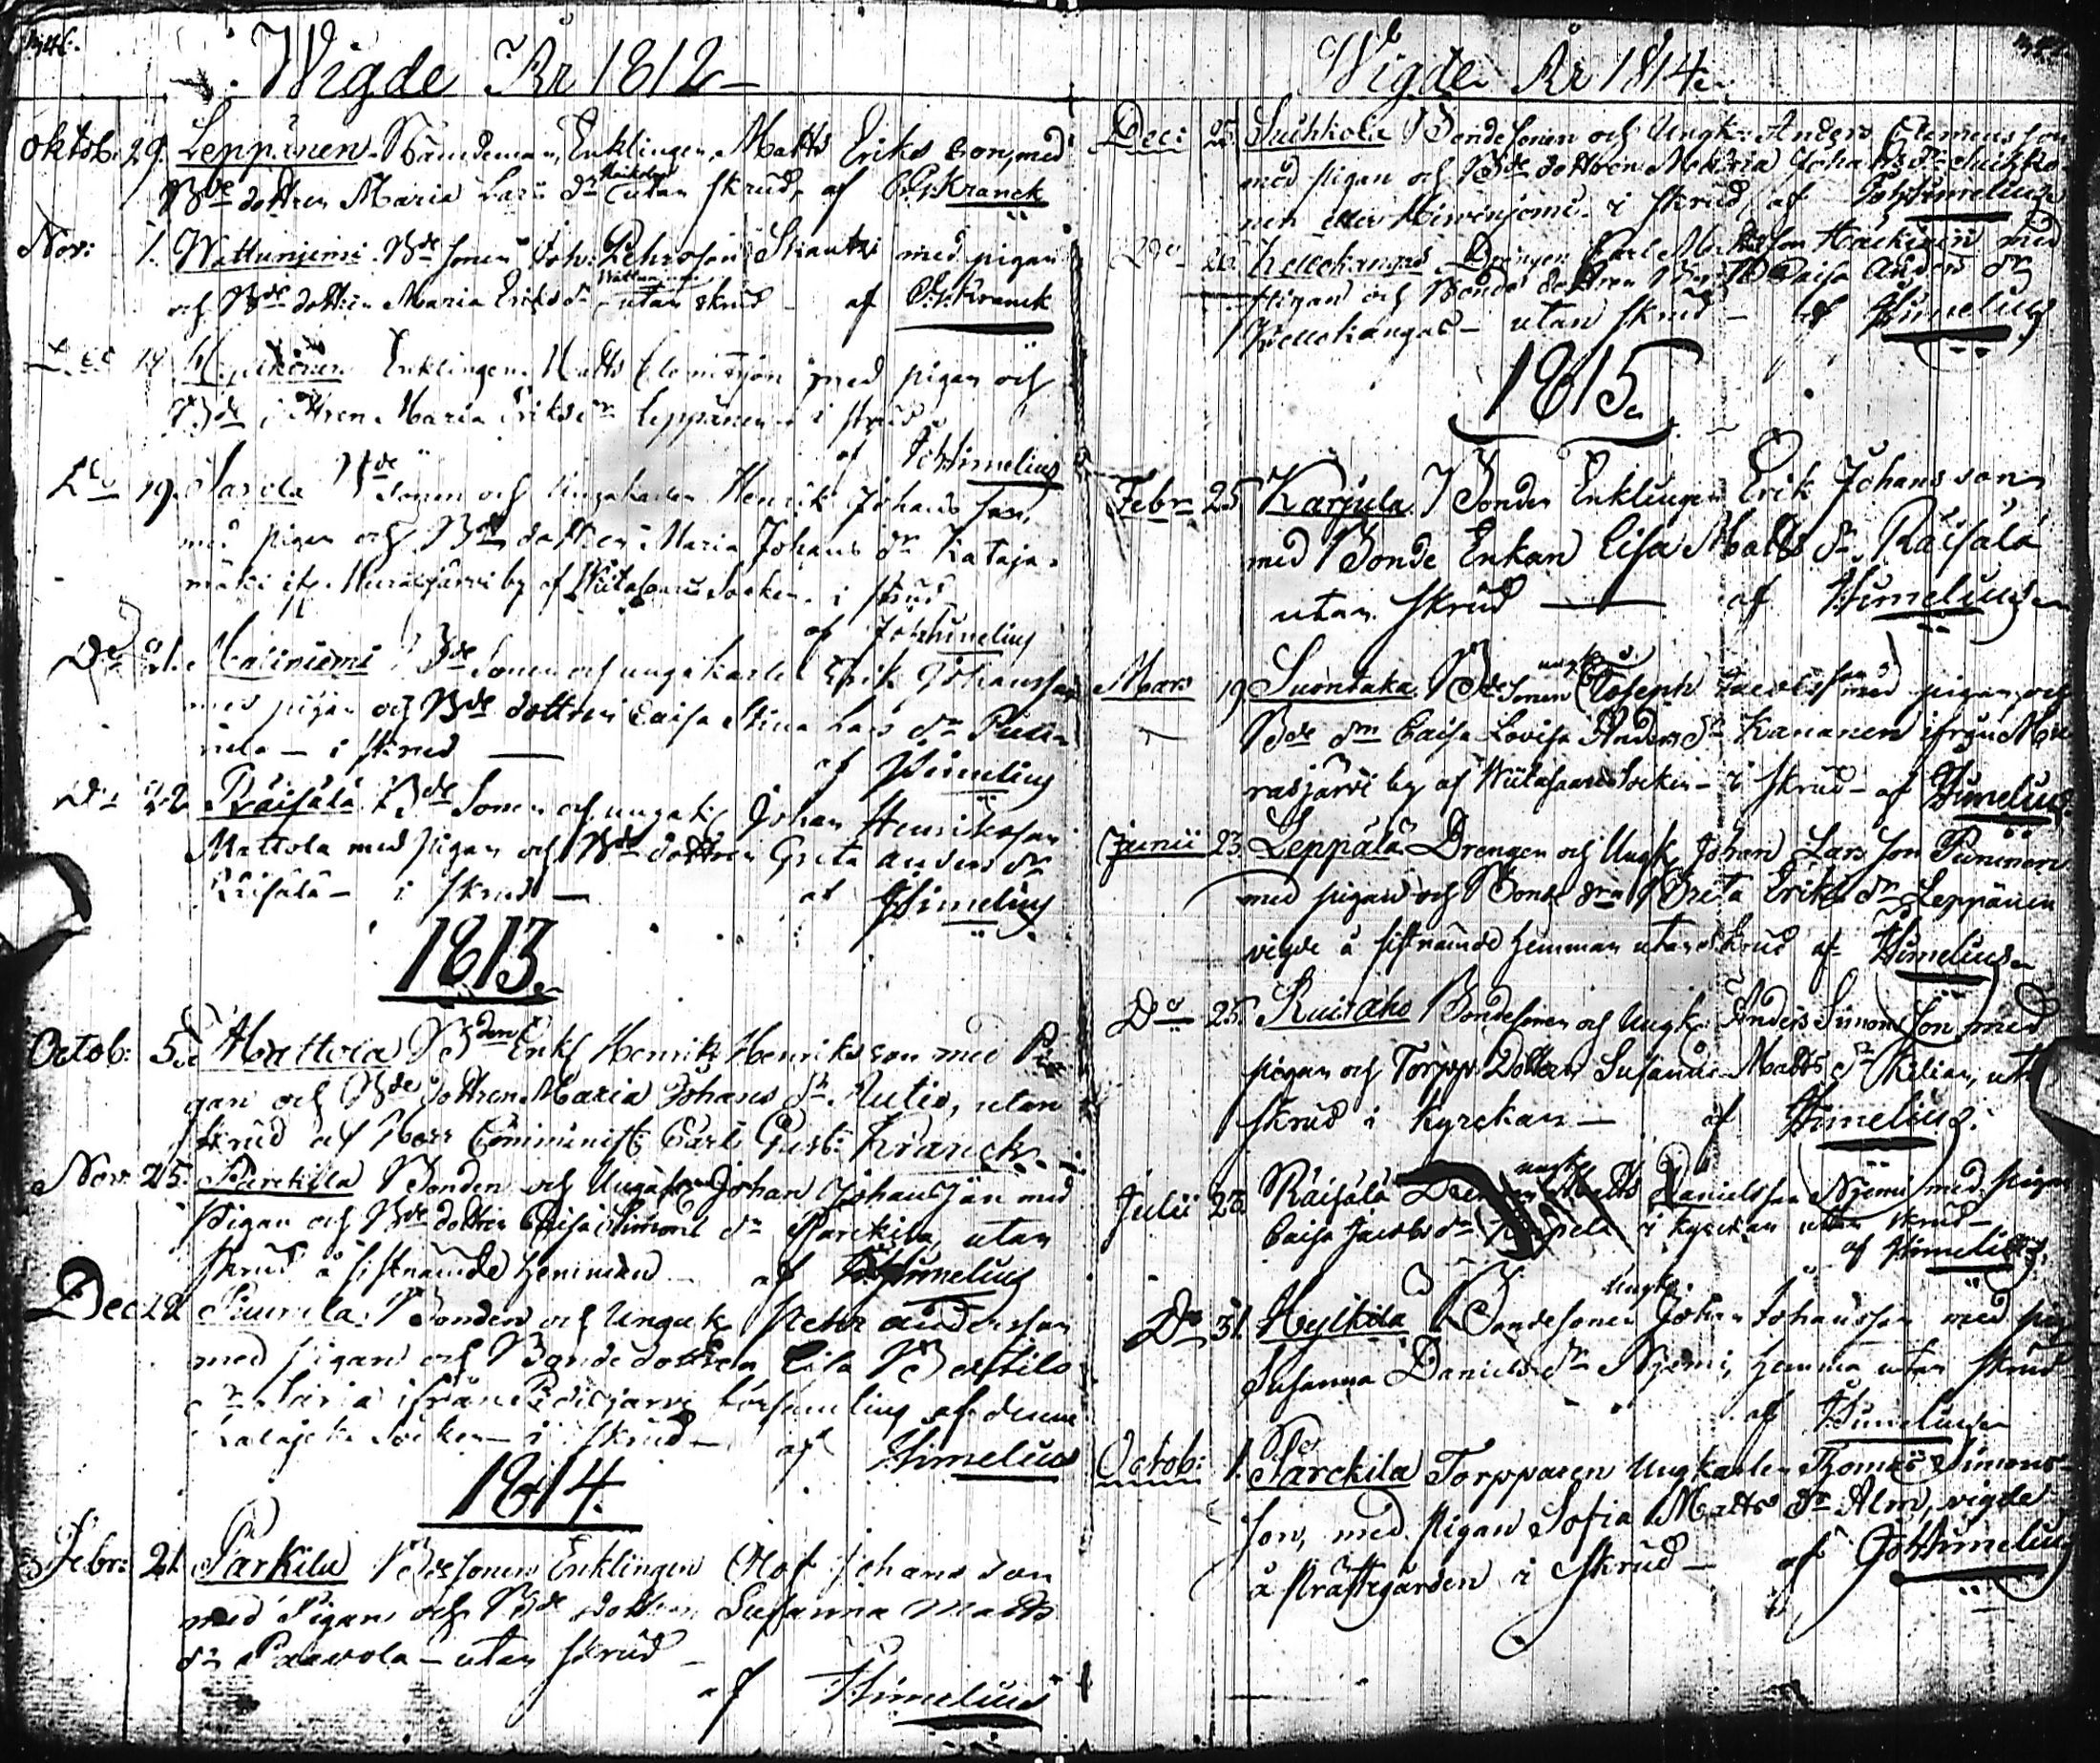 Wigde År 1812
Oktob: 29. Leppänen Nämdeman, Enklingen Matts Eriks son, med
Bde dottren Maria Lars dr utan skrud, af C.G. Kranck
Nov: 1. Wattunjemi Bde sonen Joh: Pehrsson Skantzi med pigan
Wattunjemi
och Bde dottren Maria Eriks dr utan skrud - af C.G. Kranck
14 Enklingen Matts Clemetsson med pigan och
Bde dottren Maria Eriks dr Leppänen i skrud
af Joh Himelius
Do 19. Bde Sonen och Ungkarlen Henrik Johans son,
med pigan och Bde dottren Maria Johans dr Kataja-
mäki ifr. Muurasjärvi by af Wiitasaari Socken i skrud
af Joh Himelius
Do 21. Maliniemi Bde Sonen och ungakarlen Erik Johansson
med pigan och Bde dottren Caisa Stina Lars dr
- i skrud - af Himelius
Do 22 Räisälä Bde Sonen och ungak: Johan Henriksson
Mattola med pigan och Bde dottren Greta Anders dr
Räisälä - i skrud - af Himelius
1813.
Octob: 5. Mattola Bden Enkl Henrik Henriks son med Pi-
gan och Bde dottren Maria Johans dr Autio, utan
skrud af Herr Comminist: Carl Gust: Kranck
Nov: 25. Parckila Bonden och Ungak: Johan Johansson med
Pigan och Bde dottren Caisa Simons dr Parckila, utan
skrud å sistnämde hemman af Joh Himelius
Dec 12 Bonden och Ungak: Pehr Andersson
med pigan och Bondedottren Lisa Bertils
dr ifrån Pidisjärvi församling af denna
Kalajoki Socken - i skrud - af Himelius
1814.
Febr: 21. Parkila Bde Sonen Enklingen Olof Johans son
med Pigan och Bde dottren Susanna Matts
dr Paavola - utan skrud -
af Himelius
Wigde År 1814
Dec: 25. Suihkola Bondesonen och Ungk: Anders Clemens son
med pigan och Bde dottren Maria Johans dr Suihko-
nen eller i skrud, af Joh Himelius
Do 26. Kellokangas Drängen Carl Mattsson Häckinen med
Pigan och Bonde dottren Caisa Anders dr
Kellokangas - utan skrud - af Himelius
1815.
Febr 25 Karjula Bonden Enklingen Erik Johansson
med Bonde Enkan Lisa Matts dr Räisälä
utan skrud - af Himelius
ungk:
Mars 19 Suontaka Bde Sonen Joseph Jacobsson med pigan och
Bde drn Caisa Lovisa Anders dr Kananen ifrån Mu-
rasjärvi by af Wiitasaari Socken - i skrud - af Himelius
Junii 23 Leppälä Drengen och Ungk Johan Lars Son
med pigan och Bonde drn Greta Eriks dr Leppänen
vigde å sistnämde hemman utan skrud af Himelius
Do 25. Ruiraho Bondesonen och Ungk: Anders Simons Son med
pigan och Torpp: Dottren Susanna Matts dr Kilian, utan
skrud i kyrckan - af Himelius.
ungk
Julii 23 Räisälä Drengen Matts Danielsson Njemi med pigan
Caisa Jacobs dr i kyrckan utan skrud -
af Himelius.
Ungk:
Do 31. Hylkilä Bondesonen Johan Johansson med pig
Susanna Daniels dr Njemi, hemma utan skrud
af Himelius
Octob: 1. Parckila Torpparen Ungkarlen Thomas Simons-
son, med pigan Sofia Matts dr Alm, vigde
å Prästegården i skrud - af Joh Himelius